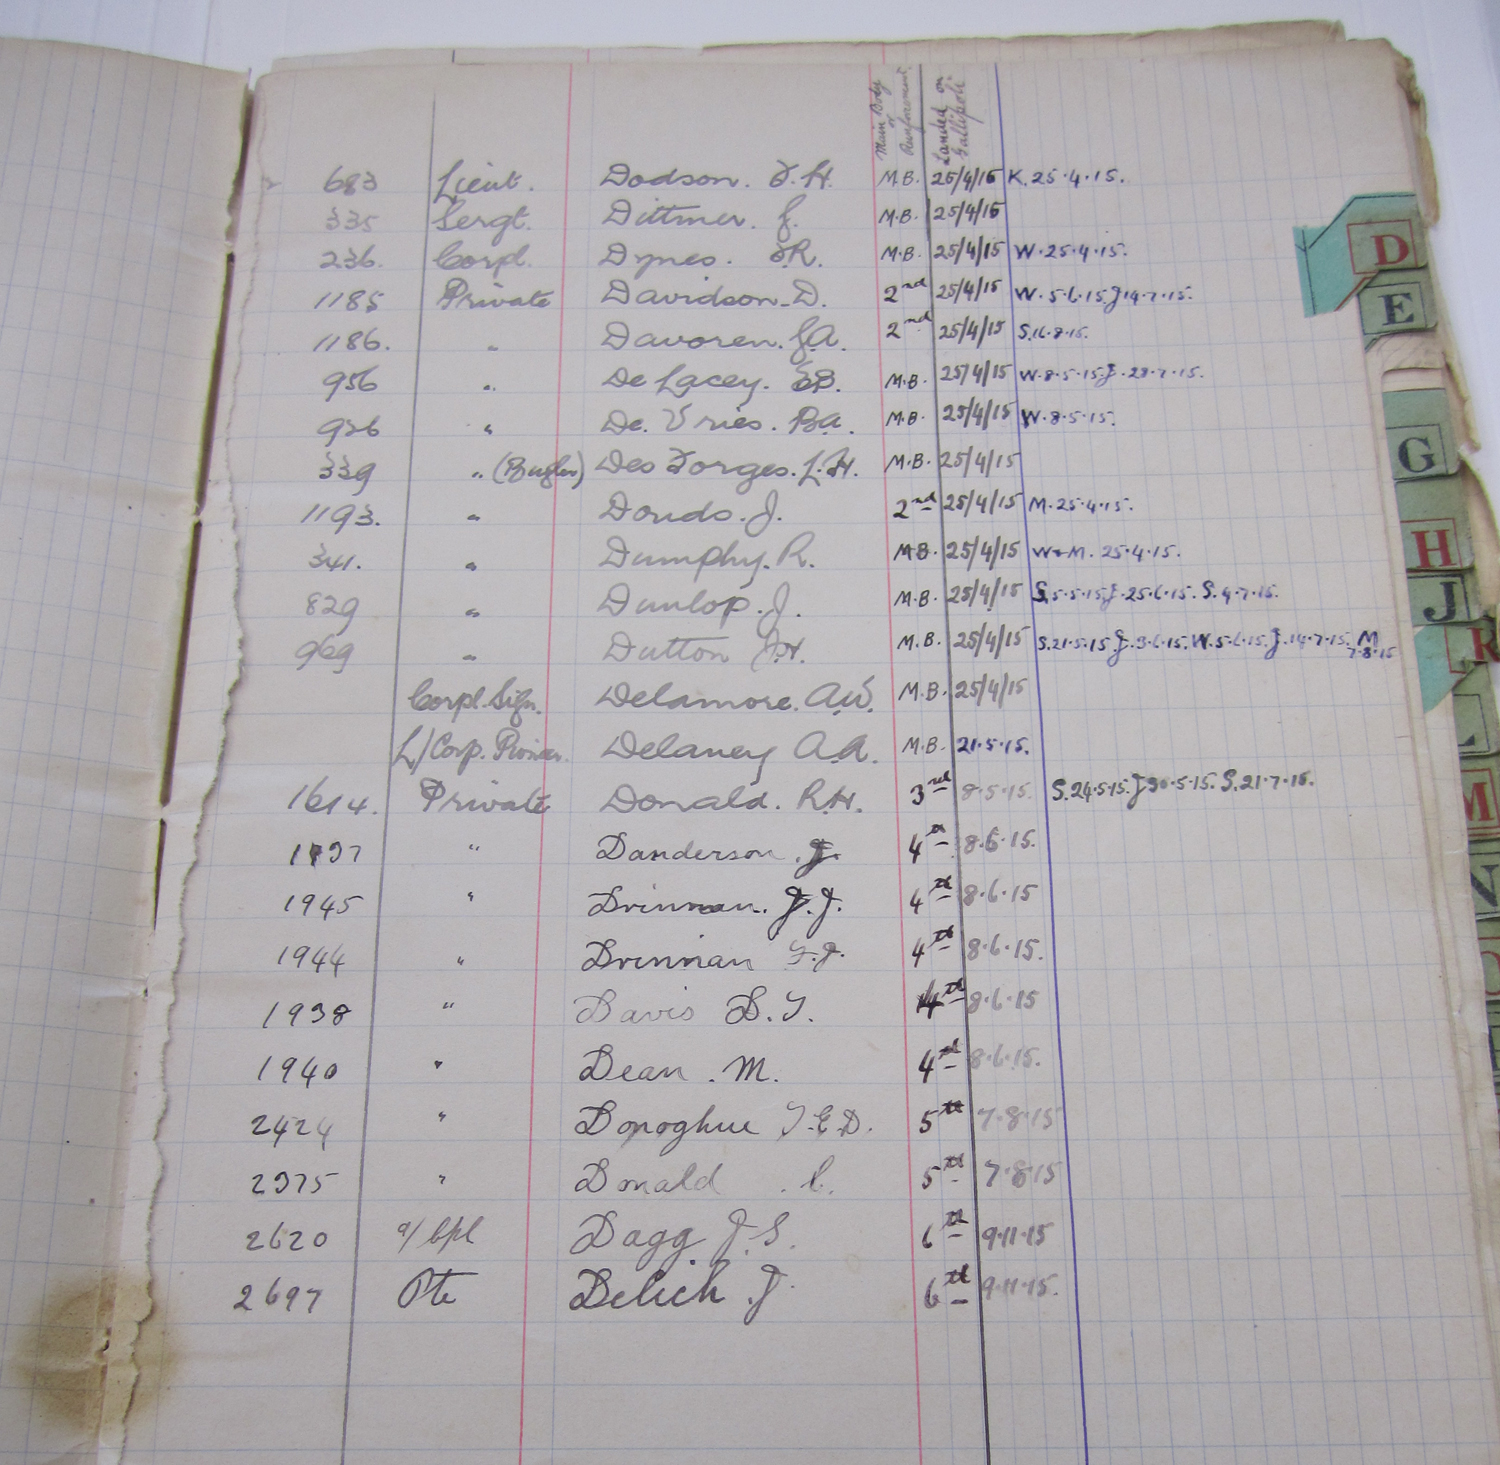 Main Body or Reinforcement Landed on Gallipoli
683 Lieut. Dodson. F.H. M.B. 25/4/15 K.25.4.15.
335 Sergt. Dittmer. G. M.B. 25/4/15
236. Corpl. Dynes. F.R. M.B. 25/4/15 W.25.4.15.
1185 Private Davidson. D. 2nd 25/4/15 W.5.6.15. J.14.7.15.
1186. " Davoren. J.A. 2nd 25/4/15 S.16.8.15.
956 " De Lacey. M.B. 25/4/15 W.8.5.15. J.28.7.15.
926 " De Vries. B.A. M.B. 25/4/15 W.8.5.15.
339 " (Bugler) Des Forges. L.H. M.B. 25/4/15
1193. " Douds. J. 2nd 25/4/15 M.25.4.15.
341. " Dumphy. R. M.B. 25/4/15 W+M. 25.4.15.
829 " Dunlop. J. M.B. 25/4/15 S.5.5.15. J.25.6.15. S.4.7.15.
969 " Dutton J.H. M.B. 25/4/15 S.21.5.15. J.3.6.15. W.5.6.15. J.14.7.15. M 7.8.15
Corpl. Sign. Delamore. A.W. M.B. 25/4/15
L/Corp. Pioneer. Delaney A.A. M.B. 21.5.15.
1614. Private Donald. R.H. 3rd 8.5.15. S.24.5.15. J.30.5.15. S.21.7.15.
1937 " Danderson J. 4th 8.6.15.
1945 " Drinnan. J.J. 4th 8.6.15
1944 " Drinnan F.J. 4th 8.6.15.
1938 " Davis D.T. 4th 8.6.15
1940 " Dean. M. 4th 8.6.15.
2424 " Donoghue T.E.D. 5th 7.8.15
2375 " Donald. C. 5th 7.8.15
2620 a/Cpl Dagg J.S. 6th 9.11.15
2697 Pte Delich. J. 6th 9.11.15.
D
E
G
H
J
R
L
M
N